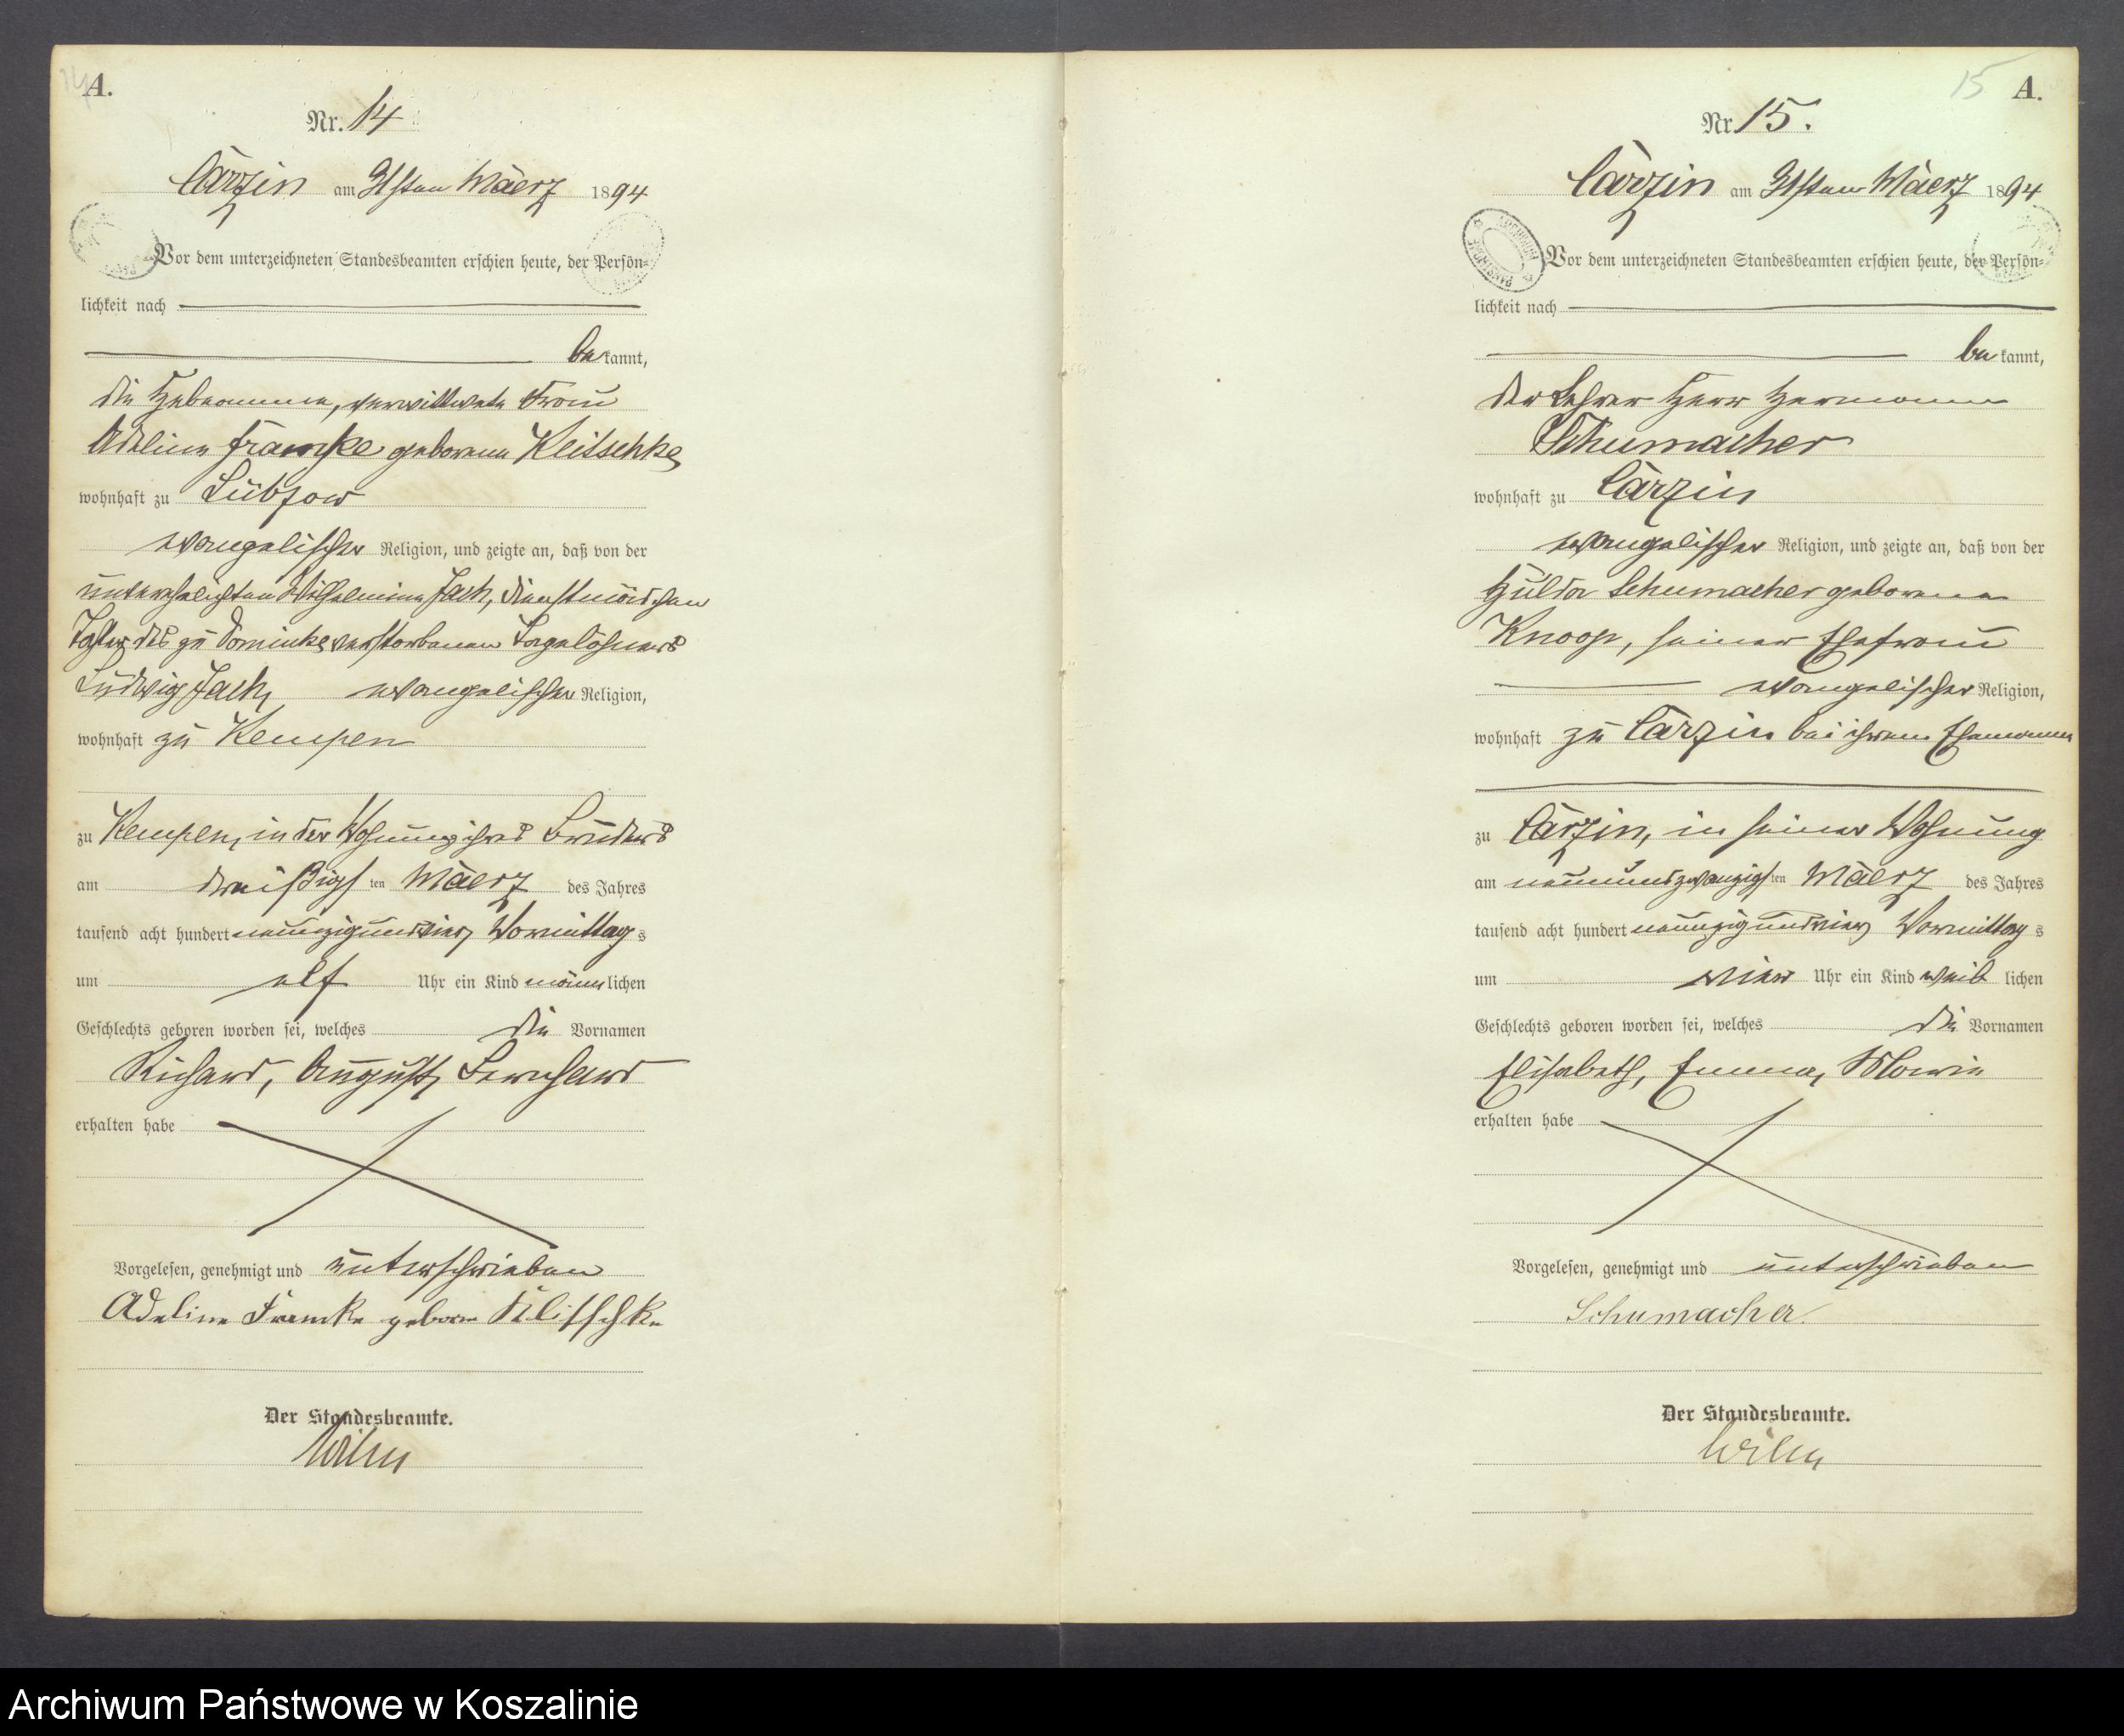 A.
Nr. 14
Carzin am 31sten Maerz 1894
Vor dem unterzeichneten Standesbeamten erschien heute, der Persön-
lichkeit nach
bekannt,
die Hebeamme, verwittwete Frau
Adeline Framke geborene Klitschke,
wohnhaft zu Lübzow
evangelischer Religion, und zeigte an, daß von der
unverehelichten Wilhelmine Jach, Dienstmädchen
Tochter des zu Dominke verstorbenen Tagelöhners
Ludwig Jach, evangelischer Religion,
wohnhaft zu Kempen
zu Kempen, in der Wohnung ihres Bruders
am dreißigsten Maerz des Jahres
tausend acht hundert neunzig und vier, Vormittags
um elf Uhr ein Kind männlichen
Geschlechts geboren worden sei, welches die Vornamen
Richard, August, Bernhard
erhalten habe
Vorgelesen, genehmigt und unterschrieben
Adeline Framke geborne Klitschke
Der Standesbeamte.
15
A.
Nr 15.
Carzin am 31sten Maerz 1894
Vor dem unterzeichneten Standesbeamten erschien heute, der Persön-
lichkeit nach
bekannt,
der Lehrer Herr Hermann
Schumacher
wohnhaft zu Carzin
evangelischer Religion, und zeigte an, daß von der
Hulda Schumacher geborene
Knoop, seiner Ehefrau
evangelischer Religion,
wohnhaft zu Carzin bei ihrem Ehemann
zu Carzin, in seiner Wohnung
am neunundzwanzigsten Maerz des Jahres
tausend acht hundert neunzig und vier, Vormittags
um vier Uhr ein Kind weiblichen
Geschlechts geboren worden sei, welches die Vornamen
Elisabeth, Emma, Marie
erhalten habe
Vorgelesen, genehmigt und unterschrieben
Schumacher.
Der Standesbeamte.
Archiwum Państwowe w Koszalinie